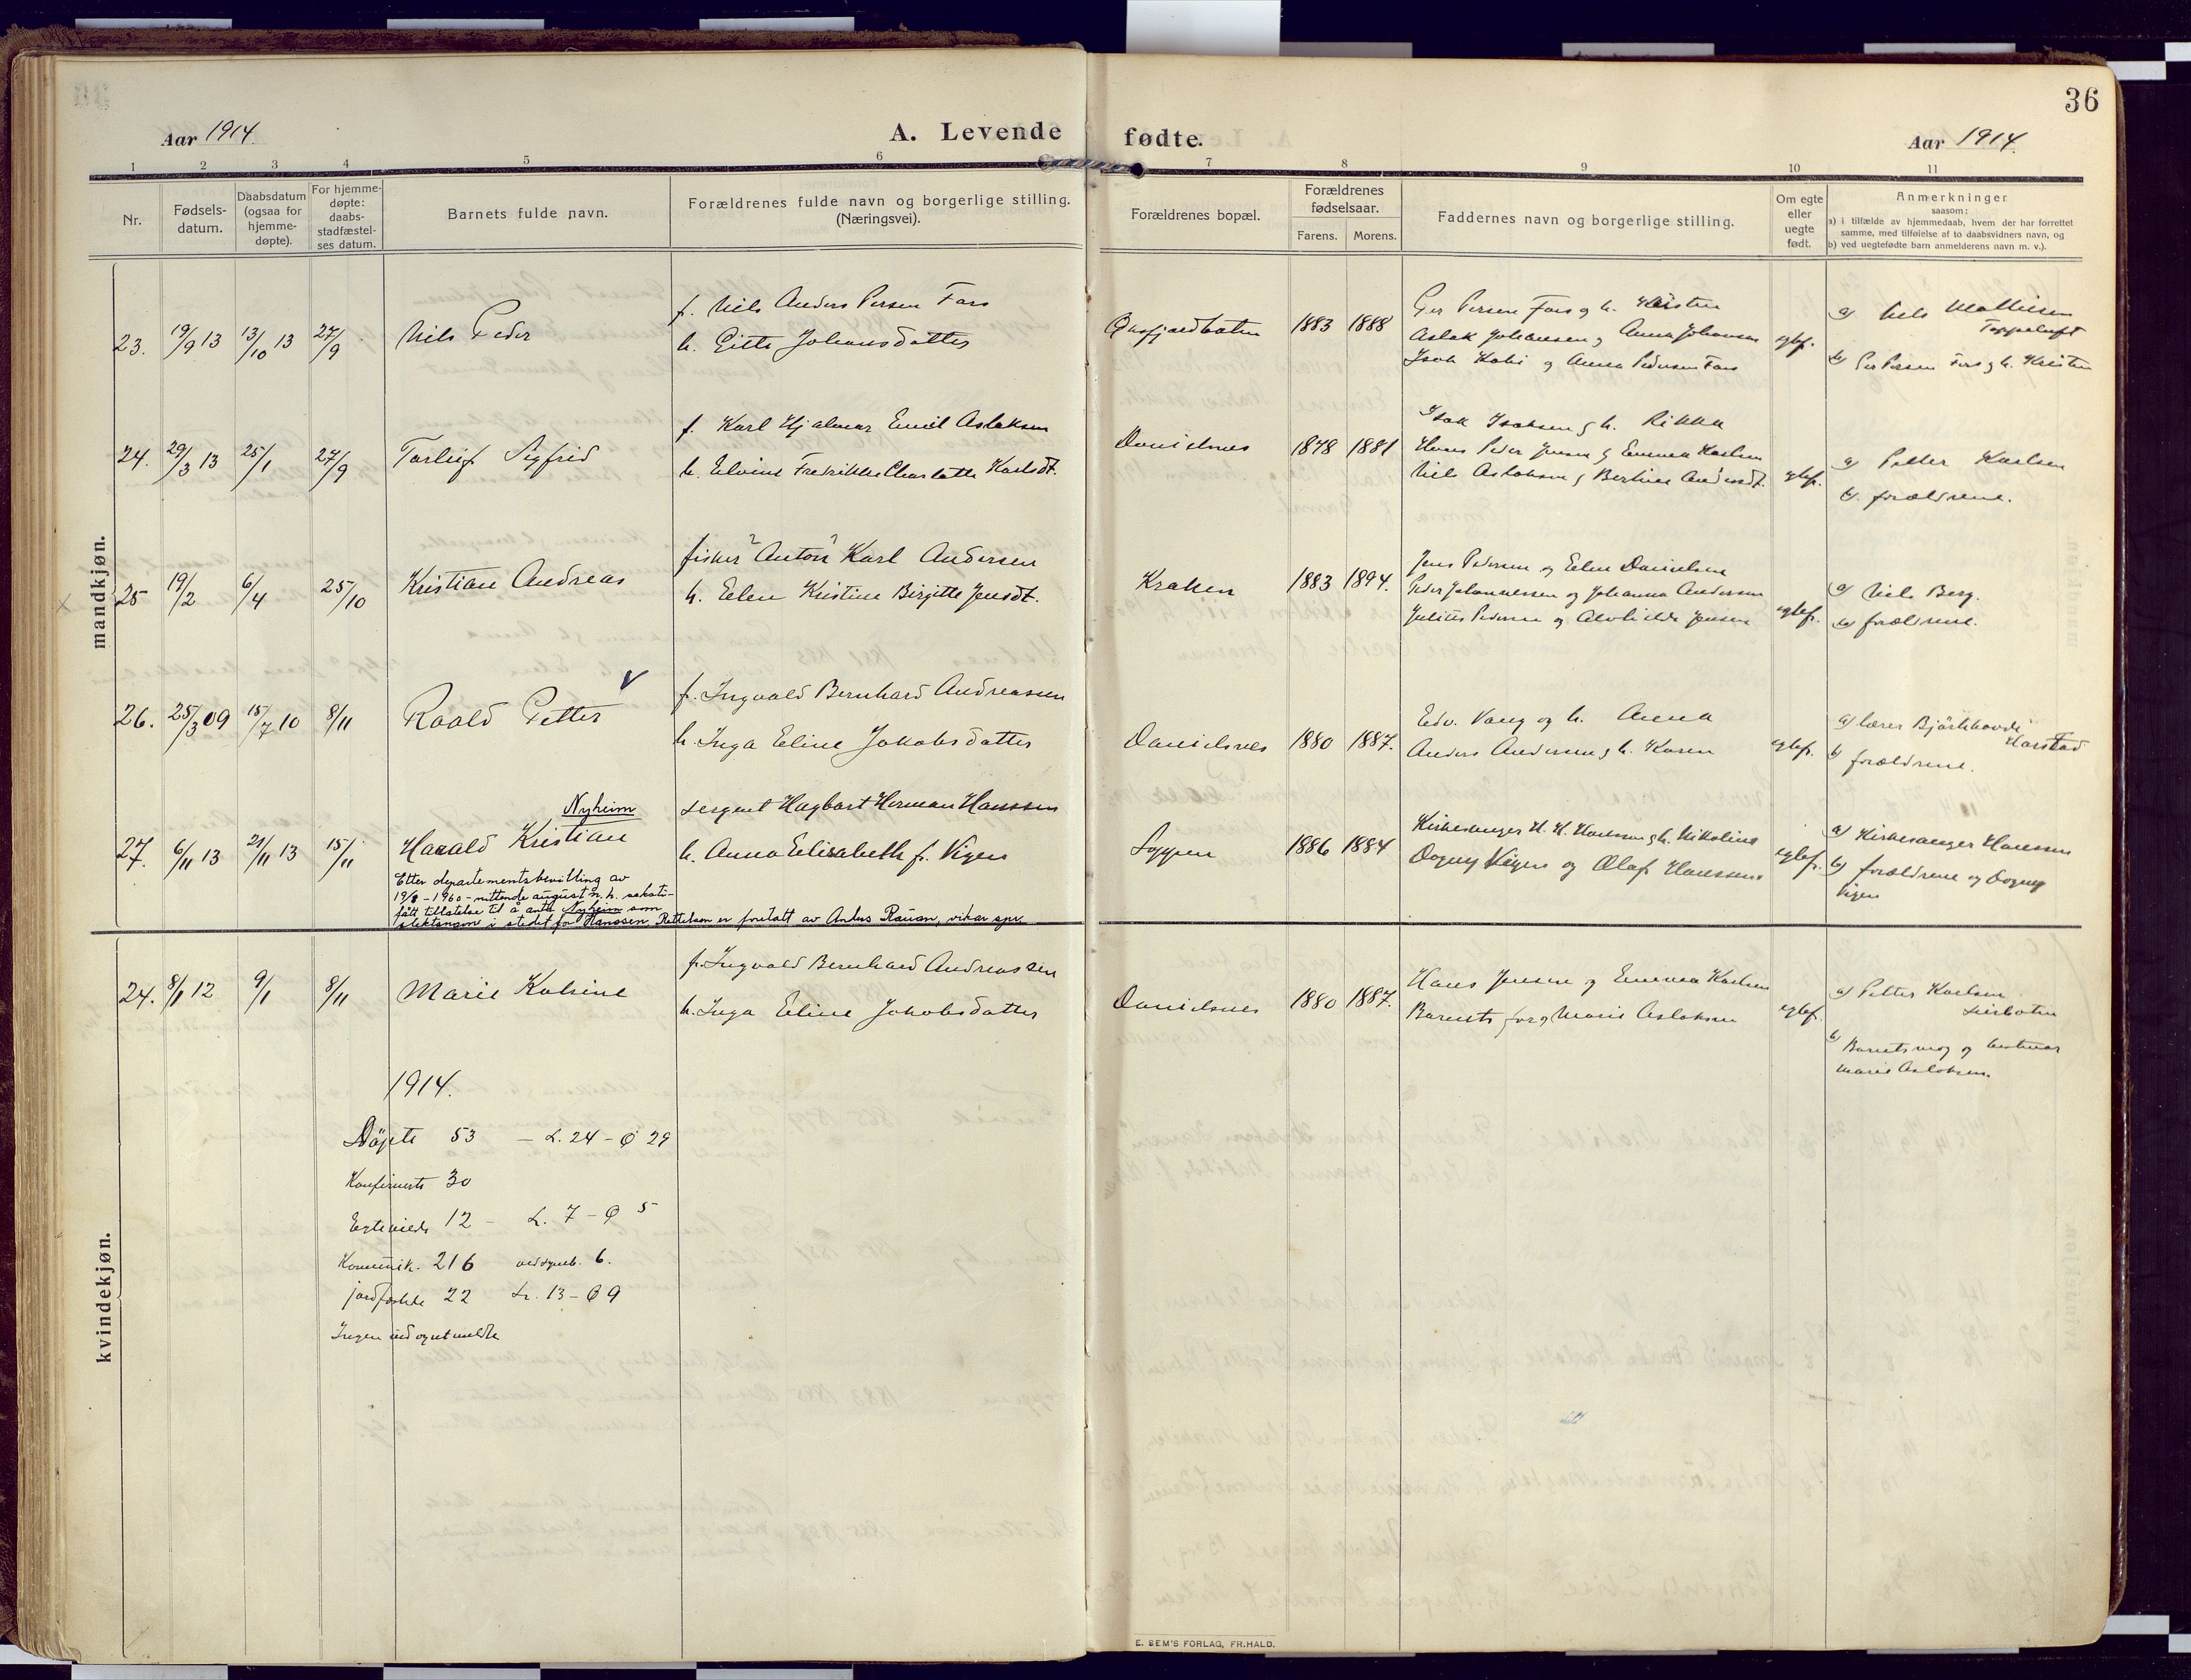 36
Aar 1914.
A. Levende fødte.
Aar 1914.
1 2 3 4 5 6 7 8 9 10 11
Nr.
Fødsels-
datum.
Daabsdatum
(ogsaa for
hjemme-
døpte).
For hjemme-
døpte:
daabs-
stadfæstel-
ses datum.
Barnets fulde navn.
Forældrenes fulde navn og borgerlige stilling.
(Næringsvei).
Forældrenes bopæl.
Forældrenes
fødselsaar.
Farens. Morens.
Faddernes navn og borgerlige stilling.
Om egte
eller
uegte
født.
Anmerkninger
saasom:
a) i tilfælde av hjemmedaab, hvem der har forrettet
samme, med tilføielse af to daabsvidners navn, og
b) ved uegtefødte barn anmelderens navn m. v.).
mandkjøn.
23. 19/9 13 13/10 13 27/9 Nils Peder
f. Nils Anders Persen Fars
h. Gitte Johansdatter
1883 1888
Per Persen Fars og h. Kristen
Aslak Johansen og Anna Johansen
Isak Kobi og Anna Pedersen Fars
egtef.
a) Nils Mathisen
Toppeluft
b) Per Persen Fars og h. Kristen
24. 29/3 13 25/1 27/9 Torleif Sigfrid
f. Karl Hjalmar Emil Aslaksen
h. Elvine Fredrikke Charlotte Karlsdt.
Danielsnes 1878 1881
Isak Isaksen og h. Rikka
Hans Peder Jensen og Emma Karlsen
Nils Aslaksen og Berline Andersdt.
egtef.
a) Petter Karlsen
b) forældrene.
25 19/2 6/4 25/10 Kristian Andreas
fisker "Anton" Karl Andersen
h. Elen Kristine Birgitte Jensdt.
Kraken 1883 1894.
Jens Pedersen og Elen Danielsen
Peder Johannessen og Johanna Andersen
Julius Pedersen og Alvhilde Jensen
egtef.
a) Nils Berg.
b) forældrene.
26. 25/3 09 15/7 10 8/11 Roald Petter
f. Ingvald Bernhard Andreassen
h. Inga Eline Jakobsdatter
Danielsnes 1880 1887.
Edv. Vang og h. Anna
Anders Andersen og h. Karen
egtef.
a) lærer Bjørkhovde
Harstad
b) forældrene.
27. 6/11 13 21/11 13 15/11 Harald Kristian
Nyheim
sergent Hagbart Herman Hanssen
h. Anna Elisabeth f. Vigen
Loppen 1886 1884
Kirkesanger H. K. Hanssen og h. Nikoline
Dagny Vigen og Olaf Hanssen.
egtef.
a) Kirkesanger Hanssen
b) forældrene og Dagny
Vigen
Etter departementsbevilling av
19/8 - 1960 - nittende august n. h. seksti -
fått tillatelse til å anta Nyheim som
slektsnavn i stedet for Hanssen. Rettelsen er foretatt av Anders Rauan, vikar spr.
kvindekjøn.
24. 8/1 12 9/1 8/11 Marie Katrine
f. Ingvald Bernhard Andreassen
h. Inga Eline Jakobsdatter
Danielsnes 1880 1887.
Hans Jensen og Emma Karlsen
Barnets far og Marie Aslaksen
egtef.
a) Petter Karlsen
b) Barnets mor og
Marie Aslaksen.
1914.
Døpte 53 - L. 24 - Ø 29
Konfirmerte 30
Egteviede 12 - L. 7 - Ø 5
Kommunik. 216 6.
jordfæstede 22 L. 13 - Ø 9
Ingen ind og utmeldte
E. SEM'S FORLAG, FR.HALD.